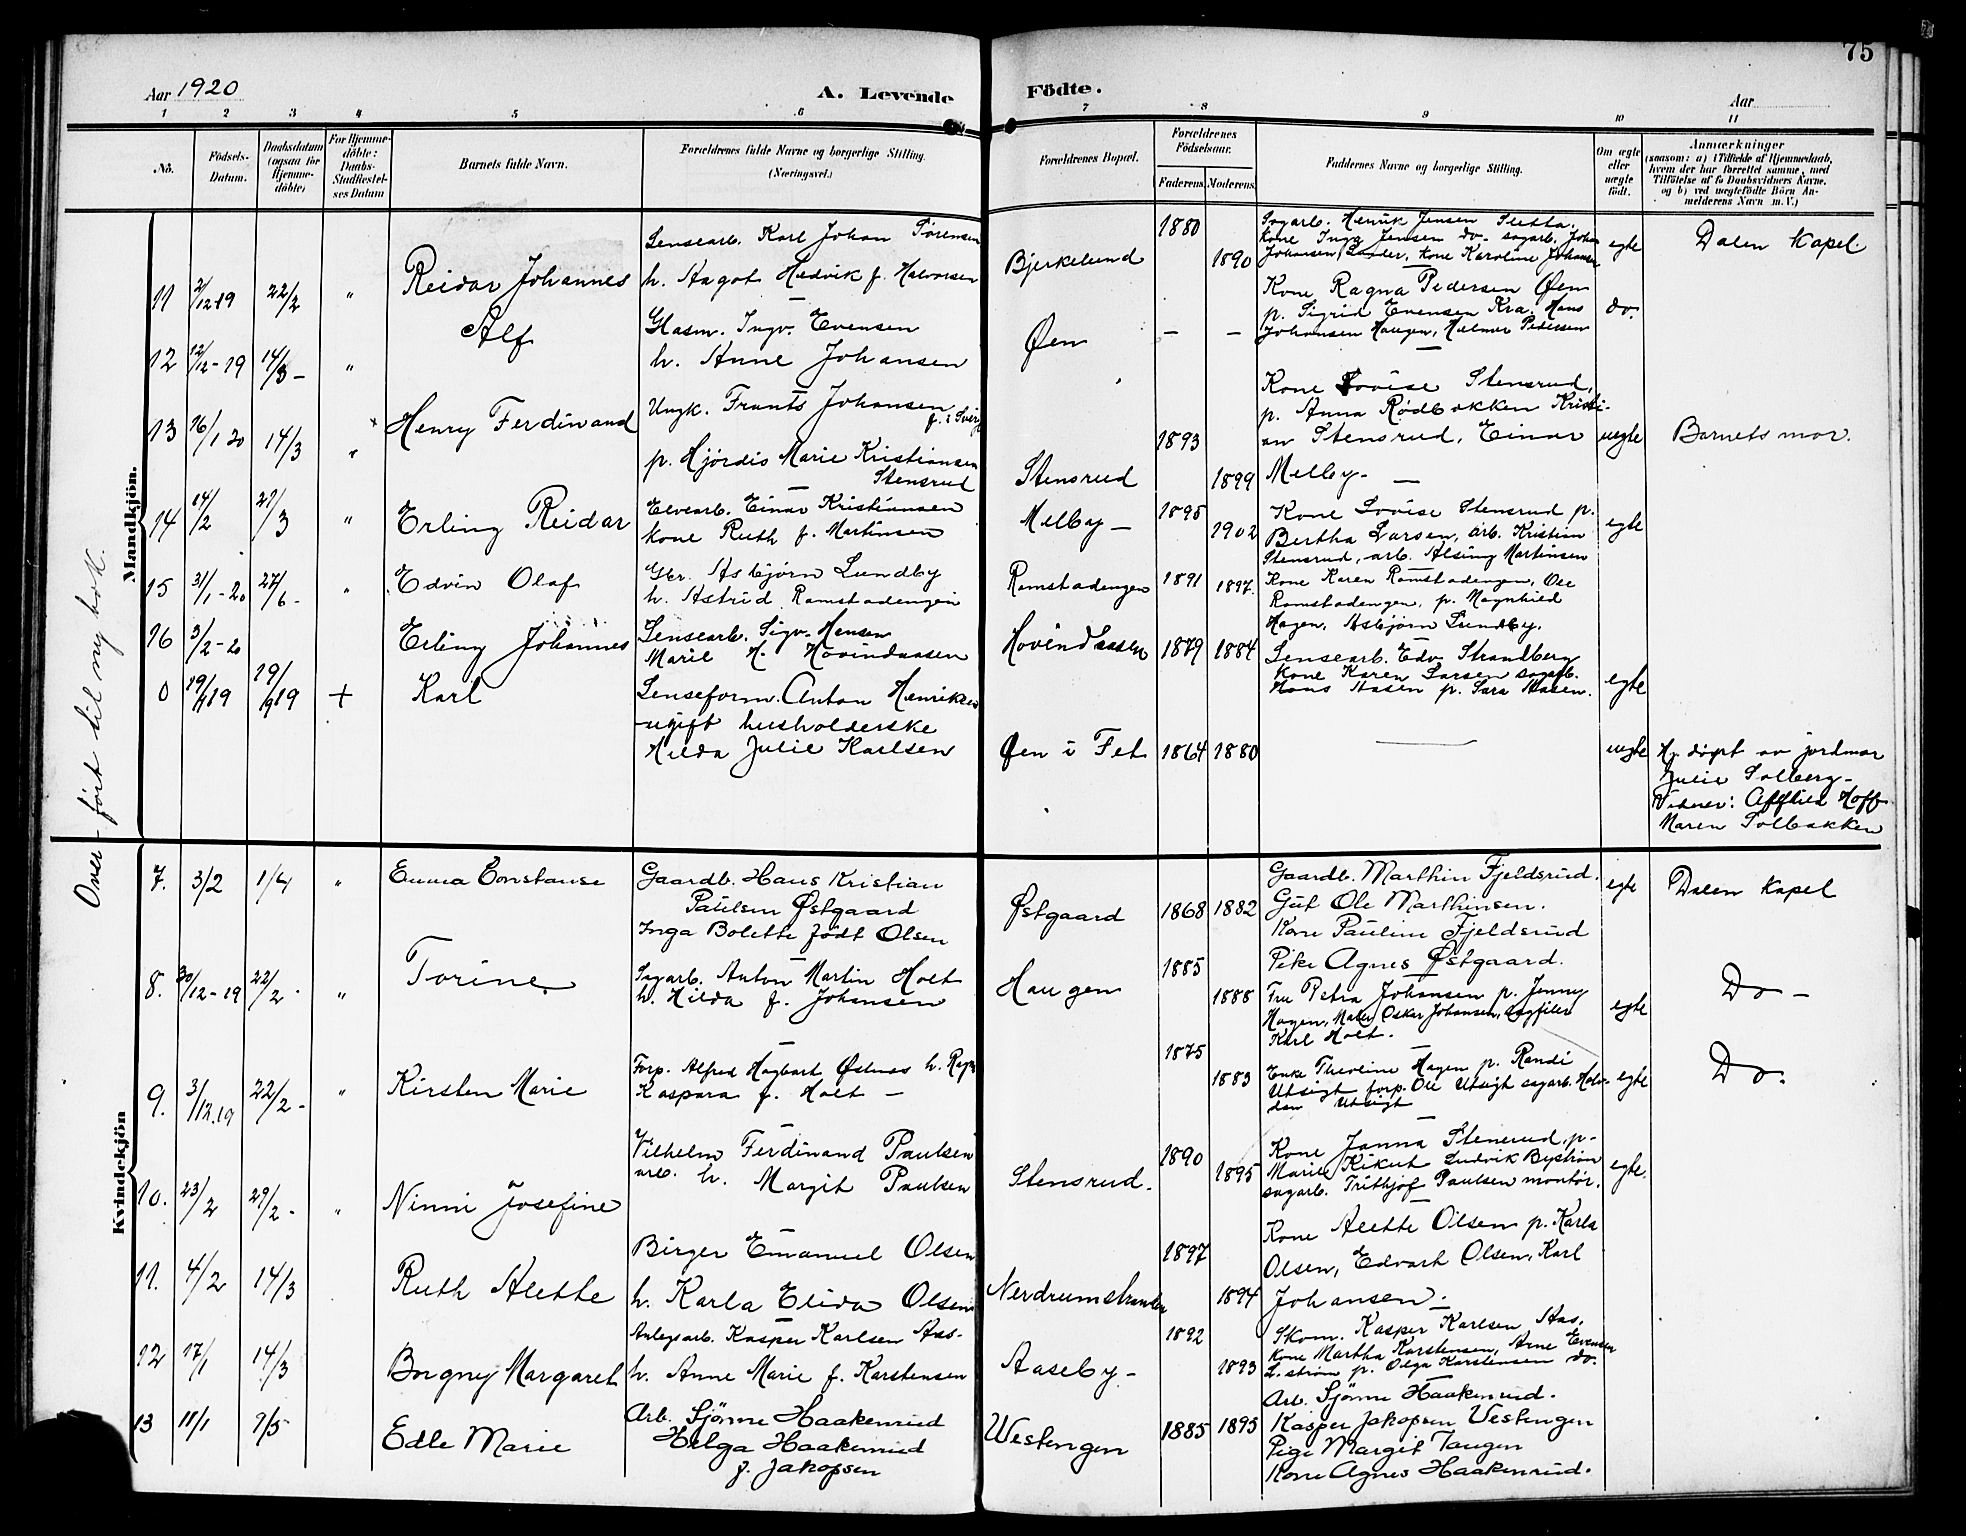 75
Aar 1920
A. Levende Födte.
Aar
1 2 3 4 5 6 7 8 9 10 11
No.
Födsels-Datum.
Daabsdatum (ogsaa for Hjemme-döbte)
For Hjemme-döbte: Daabs-Stadfæstel-ses Datum
Barnets fulde Navn.
Forældrenes fulde Navne og borgerlige Stilling. (Næringsvei.)
Forældrenes Bopæl.
Forældrenes Födselsaar.
Faderens. Moderens.
Faddernes Navne og borgerlige Stilling.
Om ægte eller uægte födt.
Anmærkninger
(saasom: a) i Tilfælde af Hjemmedaab, hvem der har forrettet samme, med Tilföielse af to Daabsvidners Navne, og b) ved uægtefödte Börn An-melderens Navn m. V.)
Over-ført til ny bok.
Mandkjön.
11 2/12 19 22/2 " Reidar Johannes
Lensearb. Karl Johan Sørensen
h. Aagot Hedvik f. Halvorsen
Bjerkelund 1880 1890
Sagarb. Henrik Jensen Sletta,
kone Inga Jensen do. sagarb. Johan
Johansen, Sander, kone Karoline Johansen
egte
Dalen Kapel.
12 12/12-19 14/3- " Alf
Glasm. Ingv. Evensen
h. Anne Johansen
Øen - -
Kone Ragna Pedersen Øen
p. Sigrid Evensen Kra. Hans
Johansen Haugen, Halmar Pedersen
do.
13 16/1 20 14/3 " Henry Ferdinand
Ungk. Frants Johansen
f. i Sverg
p. Hjørdis Marie Kristiansen
Stensrud
Stensrud 1893 1899
Kone Lovise Stensrud,
p. Anna Rødbakken Kristi-
an Stensrud, Einar
Melby-
uegte
Barnets mor.
14 14/2 21/3 " Erling Reidar
Elvearb. Einar Kristiansen
kone Ruth f. Martinsen
Melby- 1895 1902
Kone Lovise Stensrud p.
Bertha Larsen, arb. Kristian
Stensrud, arb. Alsing Martinsen
egte
15 31/1-20 27/6- " Edvin Olaf
Gbr. Asbjørn Lundby
h. Astrid Ramstadengen
Ramstadengen 1891 1897.
Kone Karen Ramstadengen, Ole
Ramstadengen, p. Magnhild
Hagen, Asbjørn Lundby.
16 3/2-20 Erling Johannes
Lensearb. Sigv. Hansen
Marie H. Hovindaasen
Hovindaasen 1879 1884
Lensearb. Edv. Strandberg
Kone Karen Larsen sagarb.
Hans Aasen p. Sara Aasen.
egte
0 + Karl
Lenseform. Anton Henriksen
ugift husholderske
Hilda Julie Karlsen
Øen i Fet 1864 1880
uegte
Hj. døpt av jordmor
Julie Solberg-
Vidner: Hoff
Maren Solbakken
Kvindekjön
7. 3/2 1/4 " Emma Constanse
Gaardb. Hans Kristian
Paulsen Østgaard
Inga Bolette født Olsen
Østgaard 1868 1882
Gaardb. Marthin Fjeldsrud.
Gut Ole Marthinsen.
Kone Pauline Fjeldsrud
Pike Agnes Østgaard.
egte
Dalen Kapel
8. 30/12-19 22/2. " Torine
Sagarb. Anton Martin Holt
h. Hilda f. Johansen
Haugen 1885 1888
Fru Petra Johansen p. Jenny
Hagen, Maler Oskar Johansen, sagfiler
Karl Holt.
egte
Do-
9. 3/12.19 22/2- " Kirsten Marie
Forp. Alfred Hagbart Østnes h. Ragn
Kaspara f. Holt -
1875 1883
Enke Theoline Hagen p. Randi
Utsigt forp. Ole Utsigt sagarb. Hal-
dan Utsigt
egte
Do.
10. 23/2 29/2- " Ninni Josefine
Vilhelm Ferdinand Paulsen
arb. h. Margit Paulsen
Stensrud. 1890 1895
Kone Janna Stenerud, p-
Marie Kikut Ludvik Bystrøm
sagarb. Trithjof Paulsen montør.
egte.
11. 4/2 14/3 Ruth Alette
Birger Emanuel Olsen
h. Karla Elida Olsen
Nerdrumstranden 1897 1894
Kone Alette Olsen p. Karla
Olsen, Edvart Olsen, Karl
Johansen.
12 17/1 14/3 Borgny Margaret
Anlegsarb. Kasper Karlsen Aas-
h. Anne Marie f. Karstensen
Aaseby- 1892 1893
Skom. Kasper Karlsen Aas,
Kone Martha Karstensen, Arne Evensen
L.strøm p. Olga Karstensen do.
13 11/1 7/5 Edle Marie
Arb. Sjønne Haakenrud
Helga Haakenrud
f. Jakopsen
Westengen 1885 1895
Arb. Sjønne Haakenrud.
Kasper Jakopsen Westengen
Pige Margit Tangen
Kone Agnes Haakenrud.